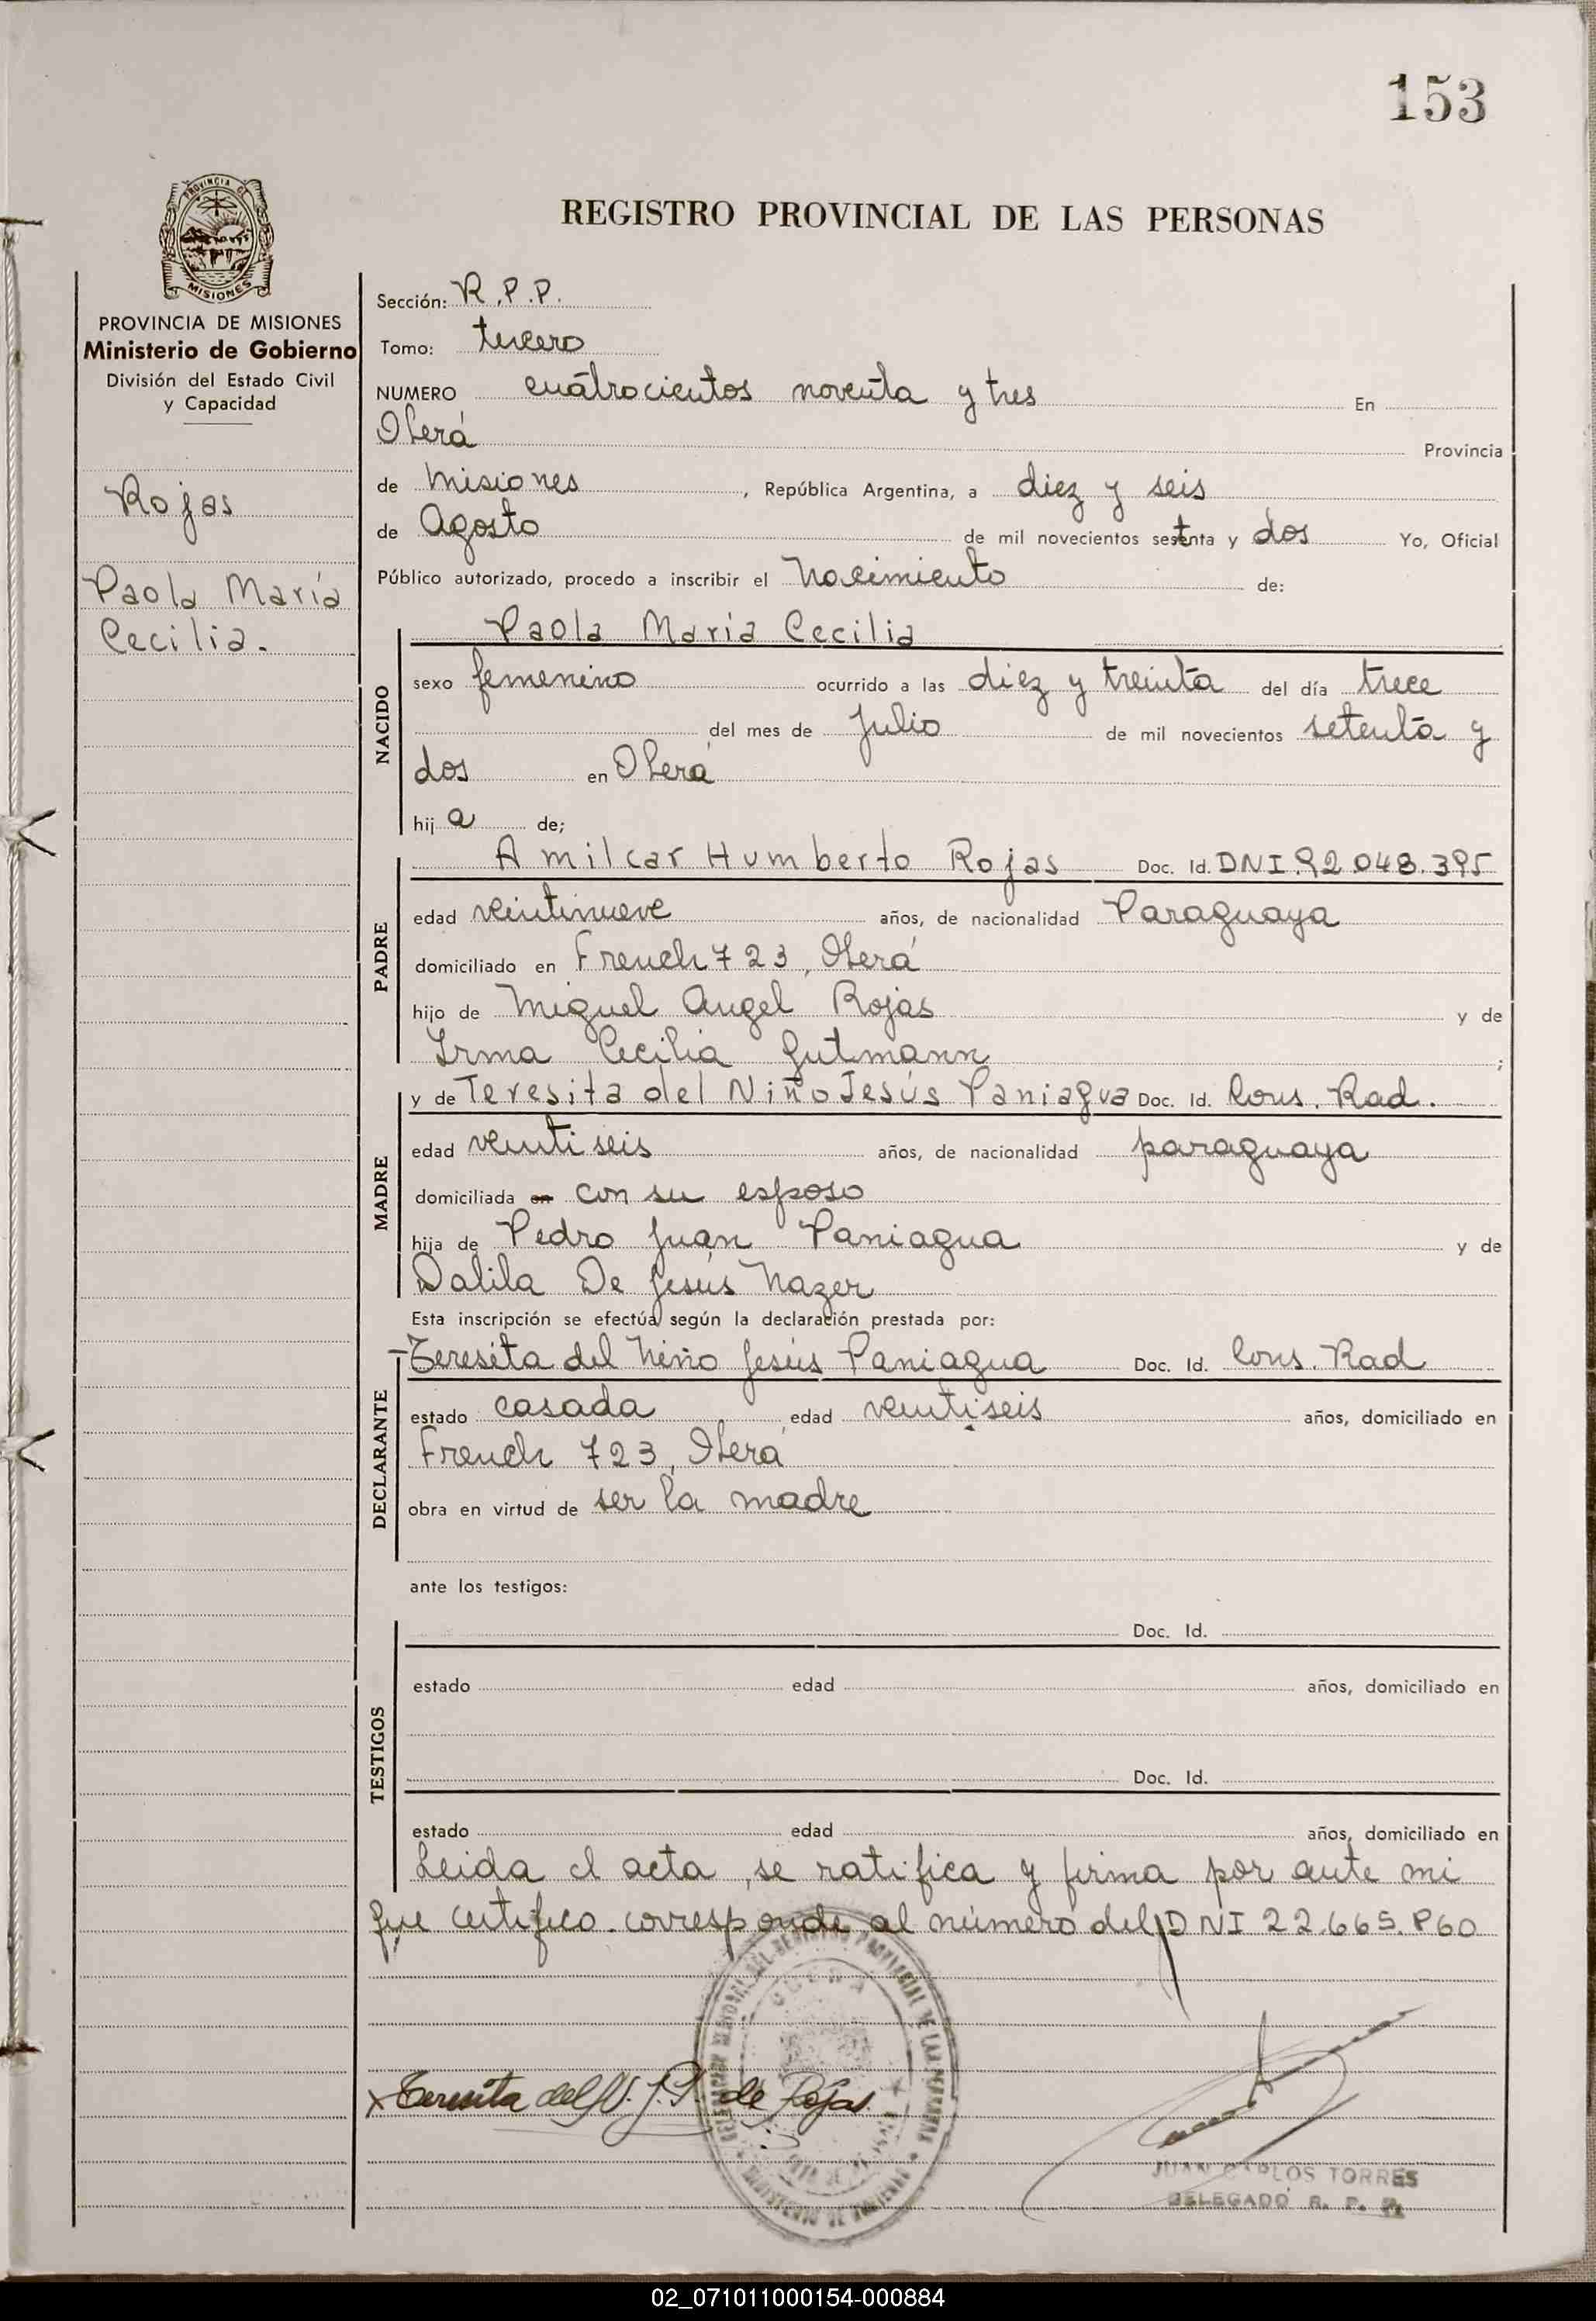 153
REGISTRO PROVINCIAL DE LAS PERSONAS
PROVINCIA DE
MISIONES
PROVINCIA DE MISIONES
Ministerio de Gobierno
División del Estado Civil
y Capacidad
Rojas
Paola María
Cecilia.
Sección: R.P.P.
Tomo: tercero
NUMERO cuatrocientos noventa y tres En
Oberá Provincia
de Misiones, República Argentina, a diez y seis
de Agosto de mil novecientos setenta y dos Yo, Oficial
Público autorizado, procedo a inscribir el Nacimiento de:
NACIDO
Paola María Cecilia
sexo femenino ocurrido a las diez y treinta del día trece
del mes de Julio de mil novecientos setenta y
dos en Oberá
hija de;
PADRE
Amilcar Humberto Rojas Doc. Id. DNI.92.048.395
edad veintinueve años, de nacionalidad Paraguaya
domiciliado en French 723, Oberá
hijo de Miguel Angel Rojas y de
Irma Cecilia Gutmann;
MADRE
y de Teresita del Niño Jesús Paniagua Doc. Id. Cons. Rad.
edad veintiseis años, de nacionalidad paraguaya
domiciliada en con su esposo
hija de Pedro Juan Paniagua y de
Dalila De Jesús Nazer
Esta inscripción se efectúa según la declaración prestada por:
DECLARANTE
Teresita del Niño Jesús Paniagua Doc. Id. Cons. Rad
estado casada edad veintiseis años, domiciliado en
French 723, Oberá
obra en virtud de ser la madre
ante los testigos:
TESTIGOS
Doc. Id.
estado edad años, domiciliado en
Doc. Id.
estado edad años, domiciliado en
Leida el acta, se ratifica y firma por ante mi
que certifico. corresponde al número del DNI 22.665.860
x Teresita del N. J. P. de Rojas.
JUAN CARLOS TORRES
DELEGADO R. P. P.
02_071011000154-000884